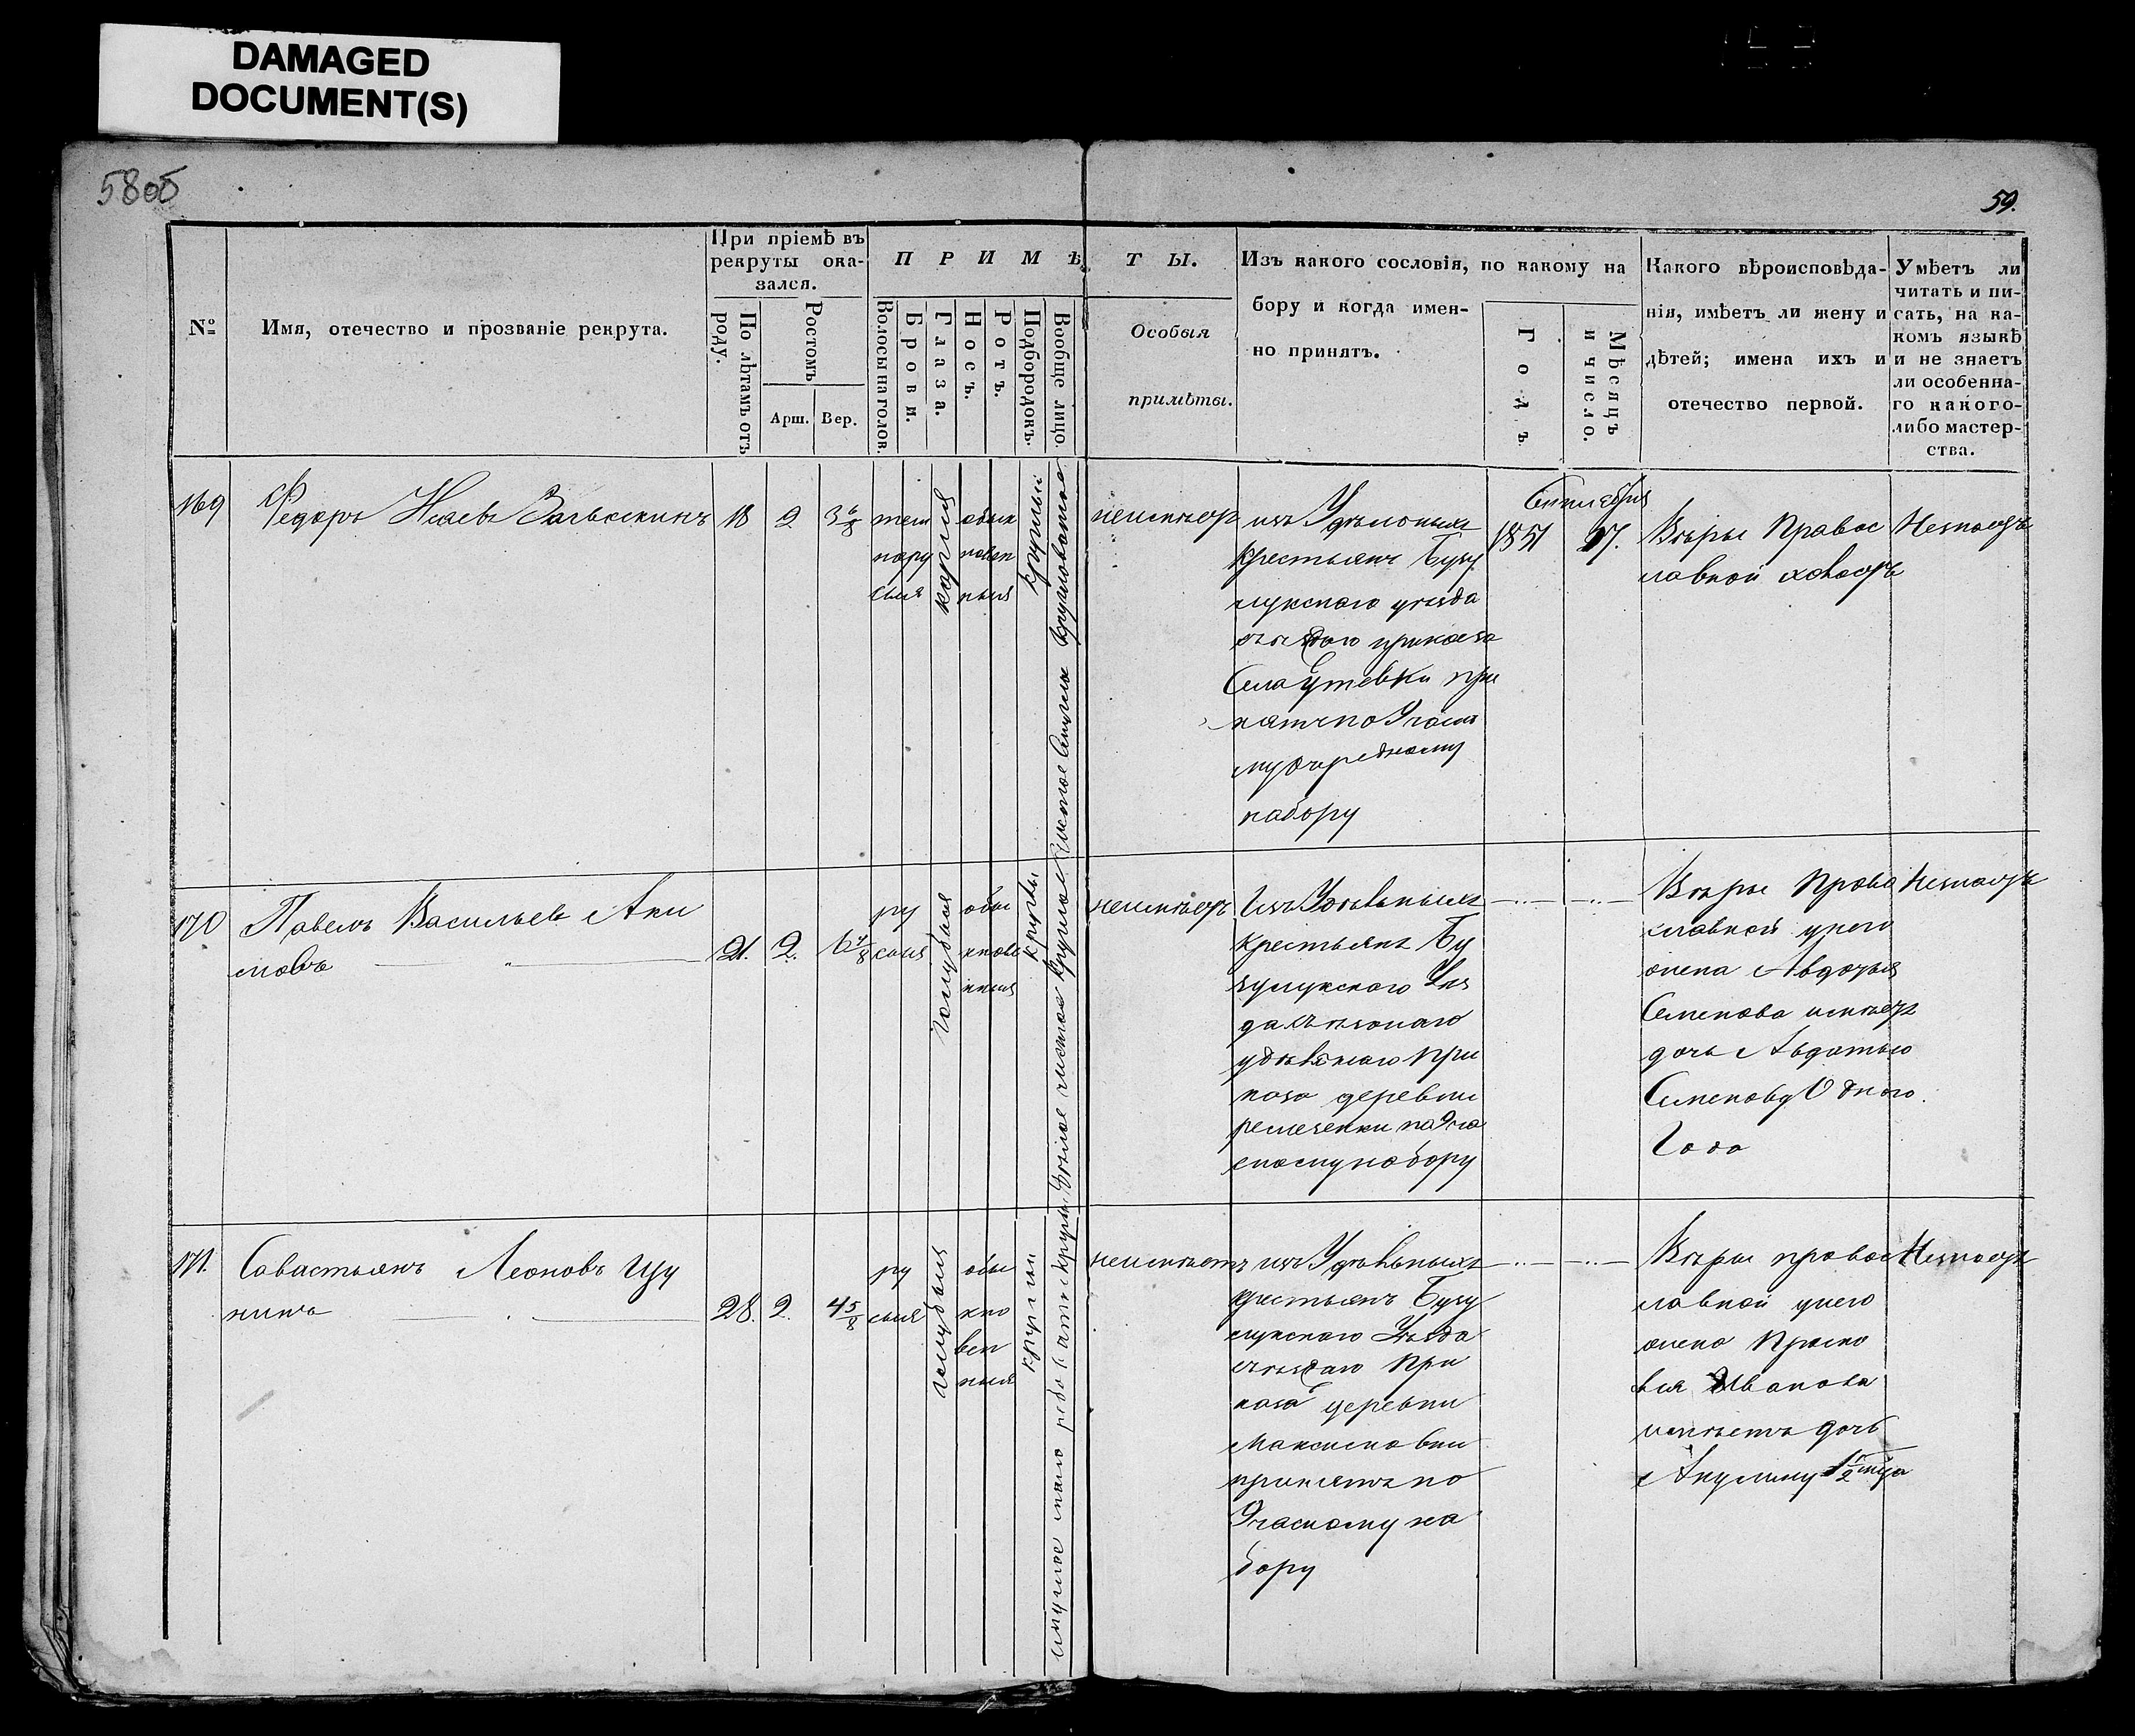 DAMAGED
DOCUMENT(S)
58об
59.
№
Имя, отечество и прозваніе рекрута.
При пріемѣ въ
рекруты ока-
зался.
По лѣтамъ отъ
роду.
Ростомъ
Арш.
Вер.
ПРИМѢТЫ.
Волосы на голов.
Брови.
Глаза.
Носъ.
Ротъ.
Подбородокъ.
Вообще лицо.
Особыя
примѣты.
Изъ какого сословія, по какому на
бору и когда имен-
но принятъ.
Годъ.
Мѣсяцъ
и число.
Какого вѣроисповѣда-
нія, имѣетъ ли жену и
дѣтей; имена ихъ и
отечество первой.
Умѣетъ ли
читать и пи-
сать, на ка-
комъ языкѣ
и не знаетъ
ли особенна-
го какого-
либо мастер-
ства.
169
Федоръ
18
2
3 6/8
тем
нору
сыя
карія
обык
новен
ныя
круглый
неимѣет
изъ Удѣльныхъ
крестьянъ Бузу
лукскаго уѣзда
приказа
Села Утевки при
нятъ по 9 част
му очередному
набору
Сентября
1851
27.
Вѣры Правос
лавной холостъ
Незнаетъ
170
Павелъ Васильевъ Аки
мовъ
21.
2.
6 4/8
ру
сыя
голубыя
обы
кнове
нныя
круглы
неимѣетъ
Изъ Удѣльныхъ
крестьянъ Бу
зулукскаго Уѣз
да
удѣльнаго При
каза деревни
по 9 ча
сному набору
Вѣры Право
славной у него
жена Авдотья
Семенова имѣетъ
дочь Авдотью
Одного
Года
Незнаетъ
171.
Савастьянъ Леоновъ Цу
нинъ
28.
2.
4 5/8
ру
сыя
голубыя
обы
кно
вен
ныя
круглый
неимѣетъ
изъ Удѣльныхъ
крестьянъ Бузу
лукскаго Уѣзда
При
каза деревни
Максимовки
принятъ по
9 часному на
бору
Вѣры правос
лавной у него
жена Праско
вья Иванова
имѣетъ дочь
Акулину 1/2 года
Незнаетъ